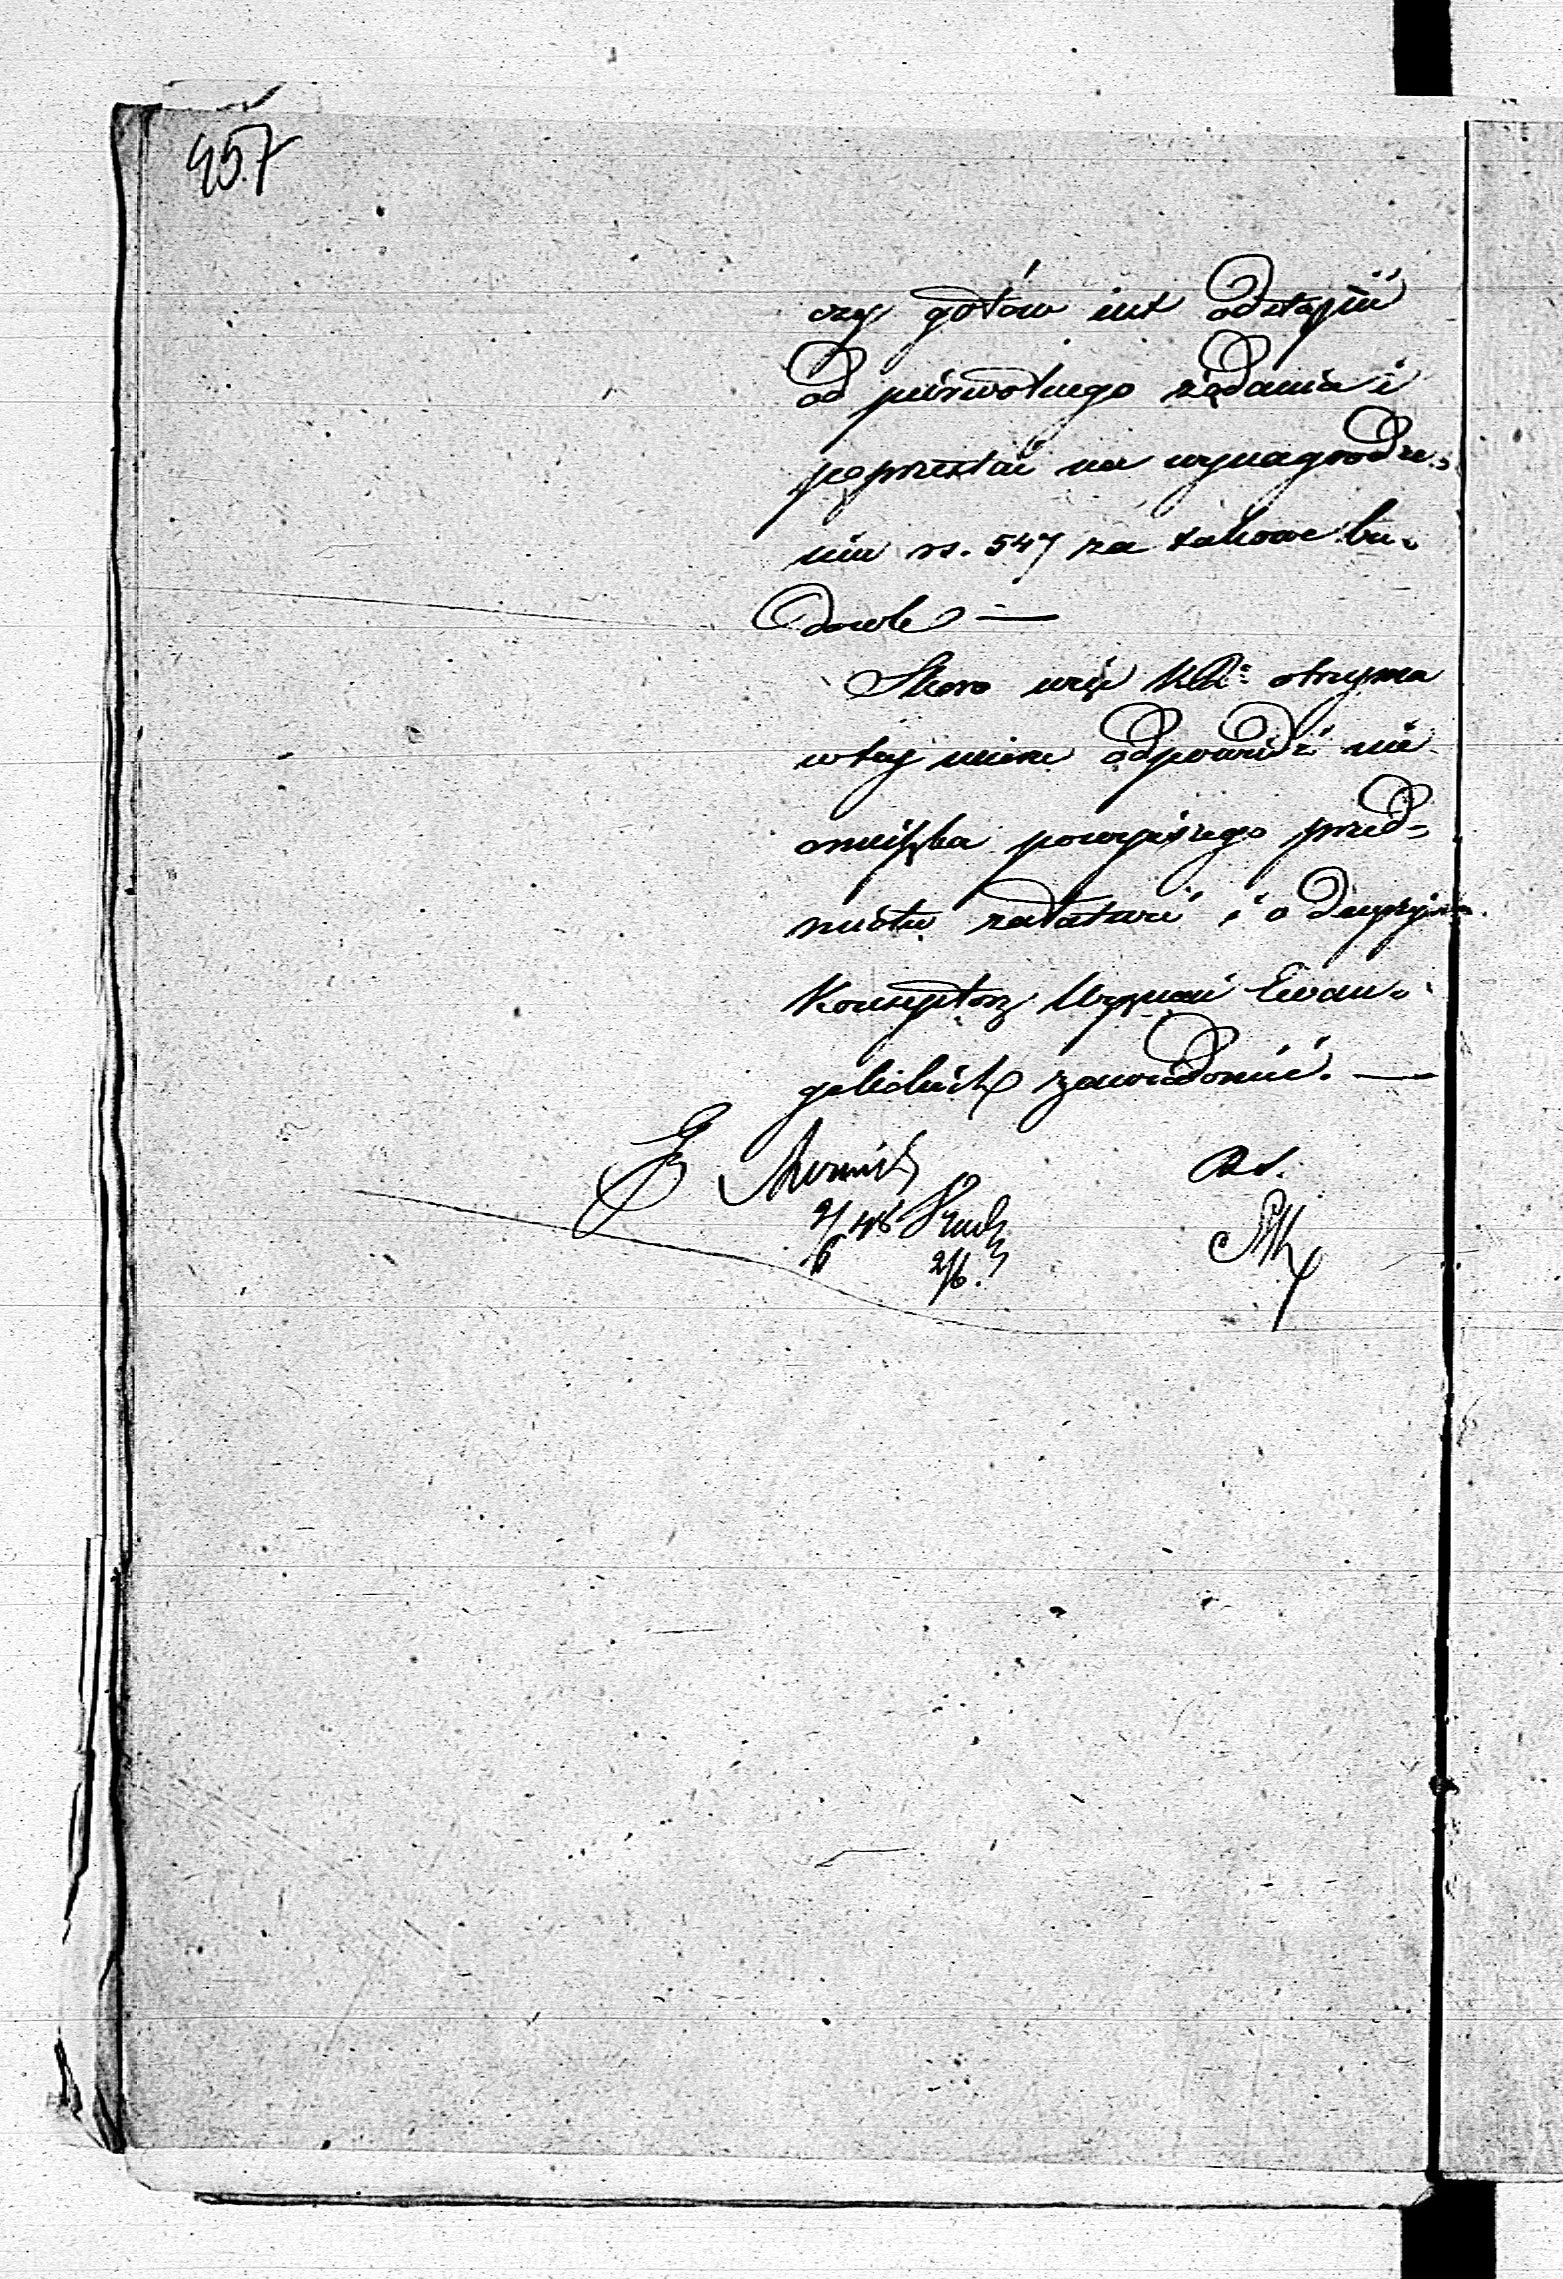 457
czy gotów iest odstąpić
od pierwotnego żądania i
poprzestać na wynagrodze-
niu rs. 547 za takowe bu-
dowle —
Skoro więc otrzyma
w tey mierze odpowiedź nie
omieszka powyższego przed-
miotu załatwić i o decyzyi
Konsystorz Wyznań Ewan-
gelickich zawiadomić. —
2/6 48
2/6